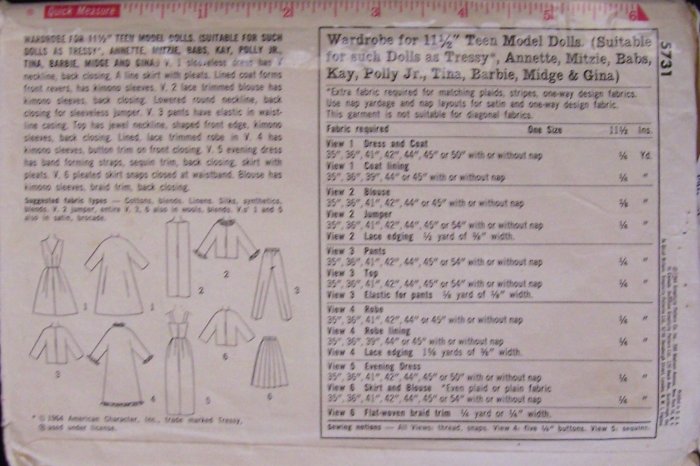 Quick Measure 1" 2" 3" 4" 5" 6"
WARDROBE FOR 11½" TEEN MODEL DOLLS. (SUITABLE FOR SUCH
DOLLS AS TRESSY*, ANNETTE, MITZIE, BABS, KAY, POLLY JR.,
TINA, BARBIE, MIDGE AND GINA) V. 1 sleeveless dress has V
neckline, back closing. A line skirt with pleats. Lined coat forms
front revers, has kimono sleeves. V. 2 lace trimmed blouse has
kimono sleeves, back closing. Lowered round neckline, back
closing for sleeveless jumper. V. 3 pants have elastic in waist-
line casing. Top has jewel neckline, shaped front edge, kimono
sleeves, back closing. Lined, lace trimmed robe in V. 4 has
kimono sleeves, button trim on front closing. V. 5 evening dress
has band forming straps, sequin trim, back closing, skirt with
pleats. V. 6 pleated skirt snaps closed at waistband. Blouse has
kimono sleeves, braid trim, back closing.
Suggested fabric types — Cottons, blends, Linens, Silks, synthetics,
blends. V. 2 jumper, entire V. 3, 6 also in wools, blends. V.s' 1 and 5
also in satin, brocade.
1
1
2
2
3
3
4
5
6
6
* © 1964 American Character, Inc., trade marked Tressy,
® used under license.
Wardrobe for 11½" Teen Model Dolls. (Suitable
for such Dolls as Tressy*, Annette, Mitzie, Babs,
Kay, Polly Jr., Tina, Barbie, Midge & Gina)
*Extra fabric required for matching plaids, stripes, one-way design fabrics.
Use nap yardage and nap layouts for satin and one-way design fabric.
This garment is not suitable for diagonal fabrics.
Fabric required One Size 11½ Ins.
View 1 Dress and Coat
35", 36", 41", 42", 44", 45" or 50" with or without nap ¼ Yd.
View 1 Coat lining
35", 36", 39", 44" or 45" with or without nap ¼ "
View 2 Blouse
35", 36", 41", 42", 44", 45" or 45" with or without nap ¼ "
View 2 Jumper
35", 36", 41", 42", 44", 45" or 54" with or without nap ¼ "
View 2 Lace edging yard of width.
View 3 Pants
35", 36", 41", 42", 44", 45" or 54" with or without nap ¼ "
View 3 Top
35", 36", 41", 42", 44", 45" or 54" with or without nap ¼ "
View 3 Elastic for pants yard of width.
View 4 Robe
35", 36", 41", 42", 44" or 45" with or without nap ¼ "
View 4 Robe lining
35", 36", 39", 44" or 45" with or without nap ¼ "
View 4 Lace edging yards of width.
View 5 Evening Dress
35", 36", 41", 42", 44", 45" or 50" with or without nap ¼ "
View 6 Skirt and Blouse *Even plaid or plain fabric
35", 36", 41", 42", 44", 45" or 54" with or without nap ¼ "
View 6 Flat-woven braid trim yard or ¼" width.
Sewing notions — All Views: thread, snaps. View 4: five buttons. View 5: sequins.
5731